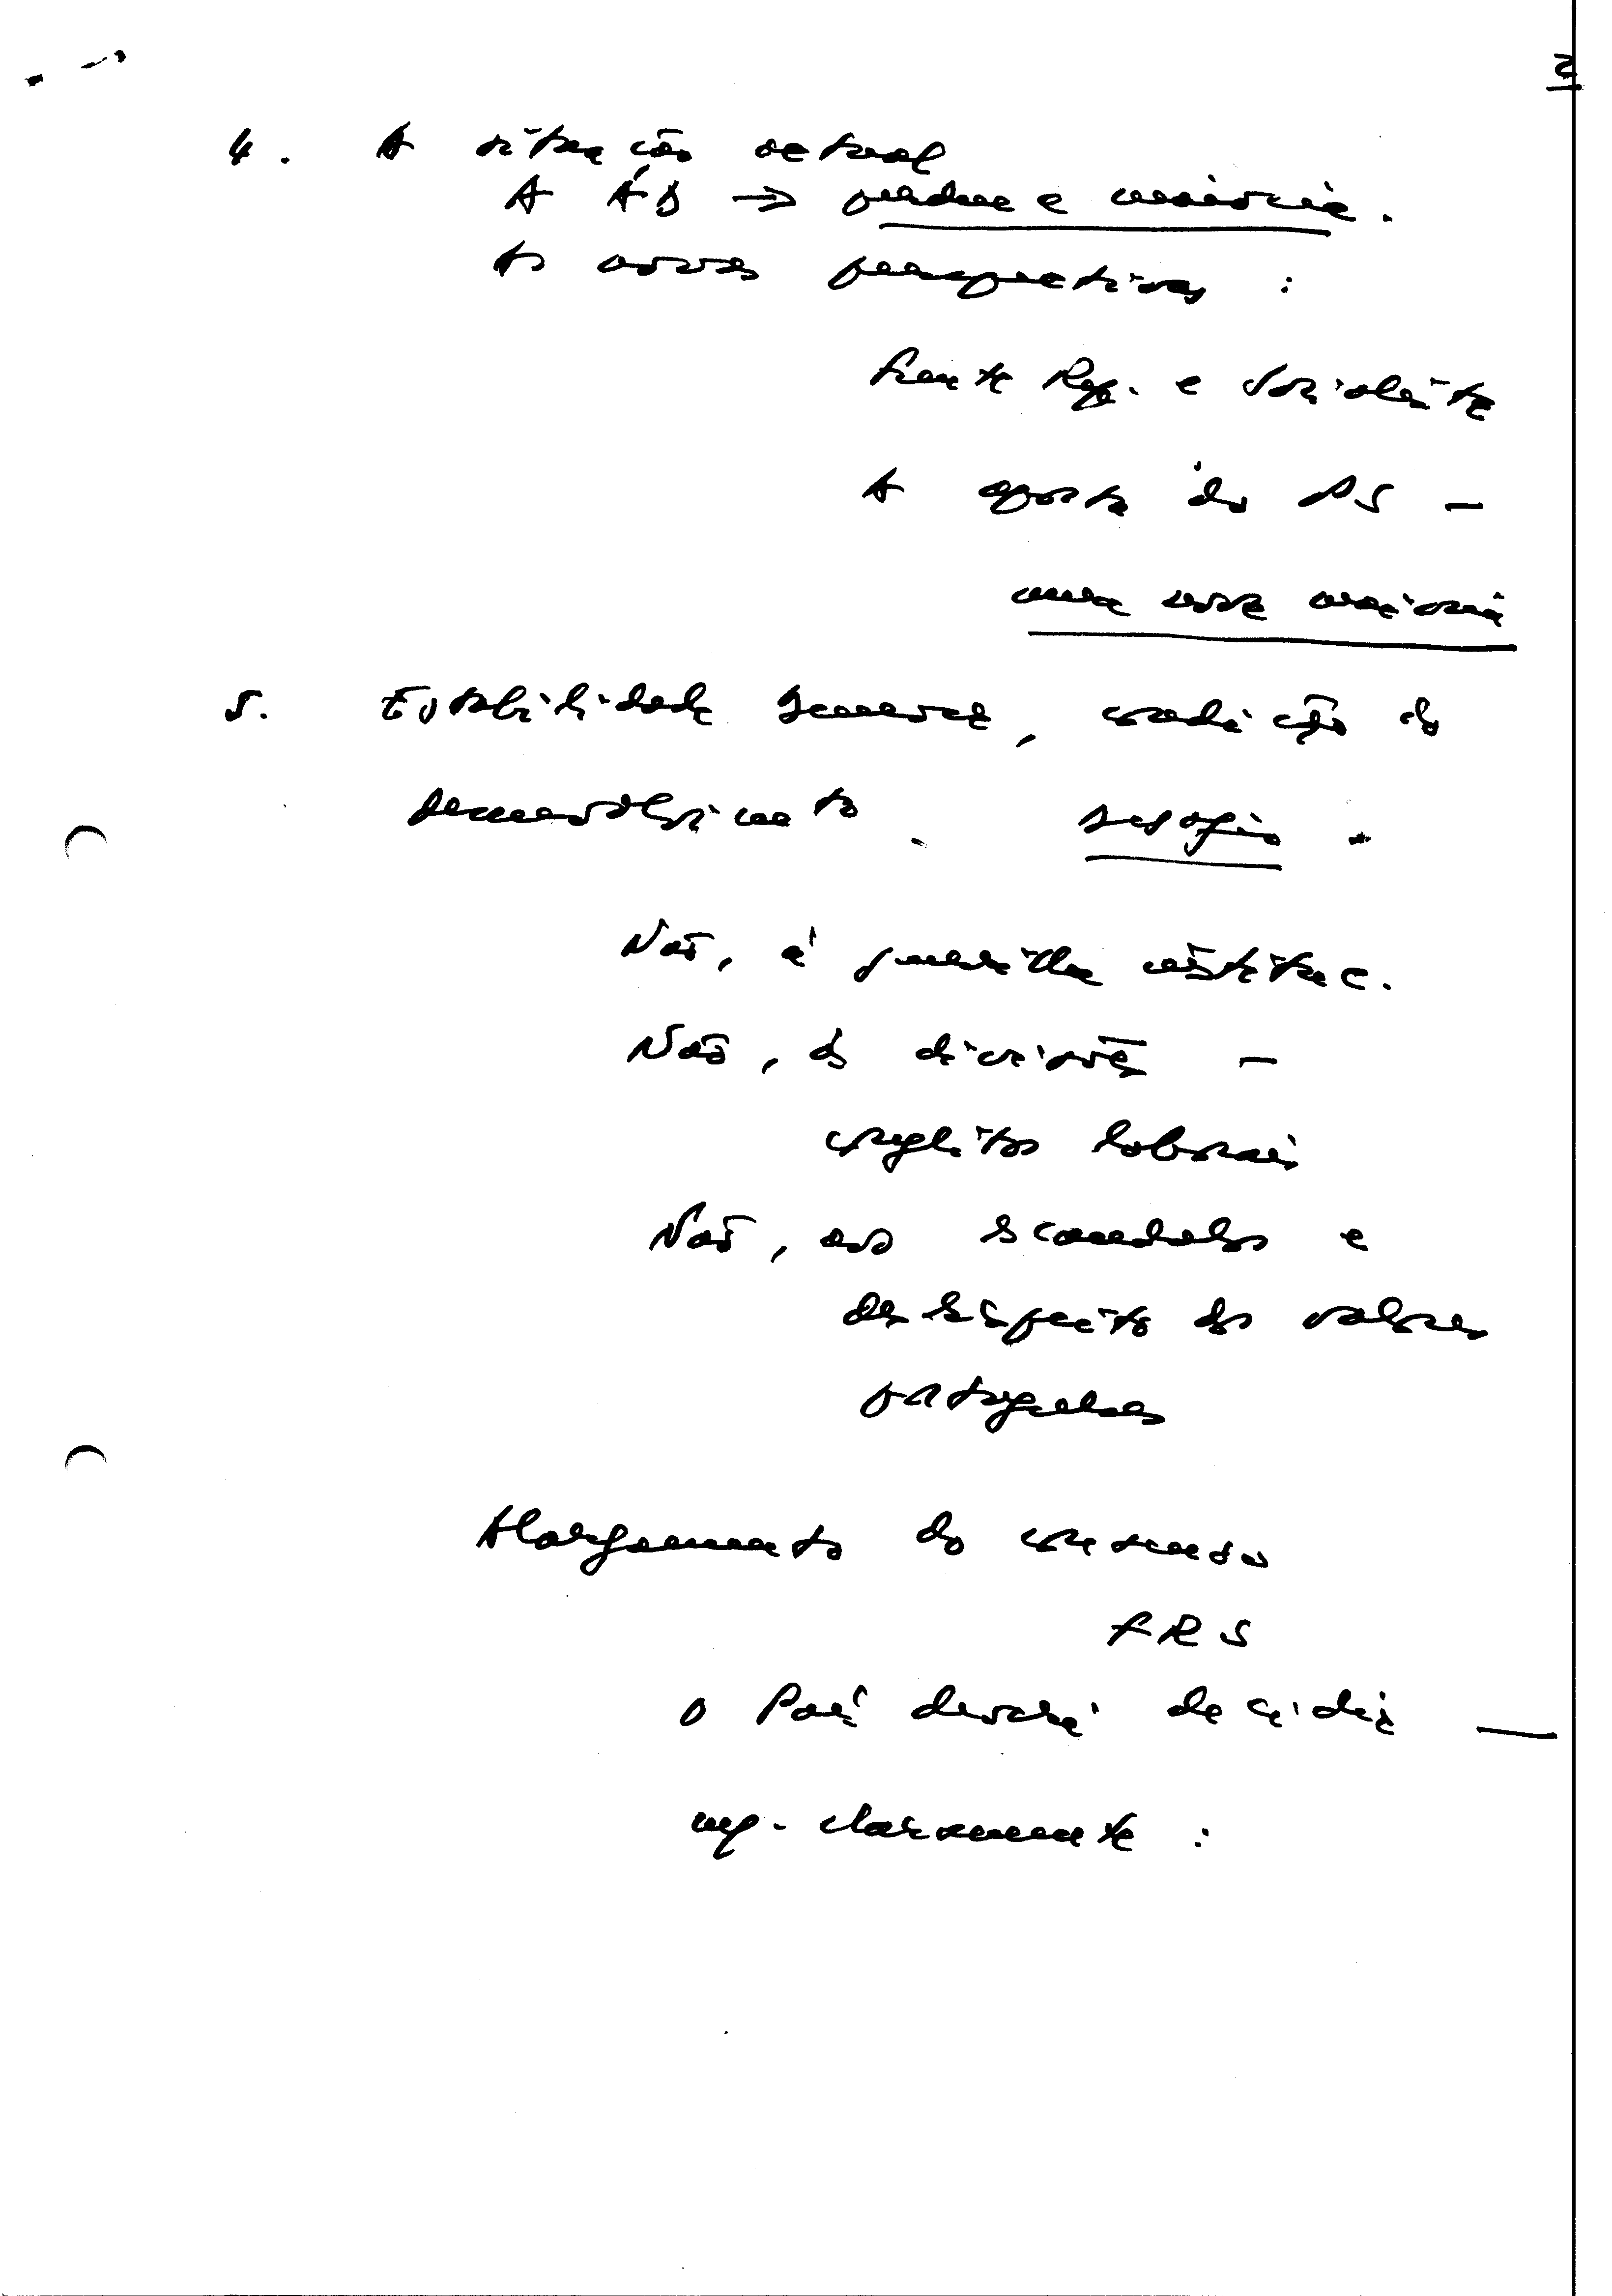 2
4. A situação actual
A AD → perdeu a maioria.
As novas perspectivas:
Frente Rep. e Socialista
A aposta do PS –
uma nova maioria
5. Estabilidade governa, condição do
desenvolvimento. desafio.
Não, à guerrilha instituc.
Não, às divisões –
conflitos laborais
Não, aos escandalos e
desrespeito dos valores
portugueses
Alargamento do consenso
FRS
O País deverá decidir —
mp. claramente: